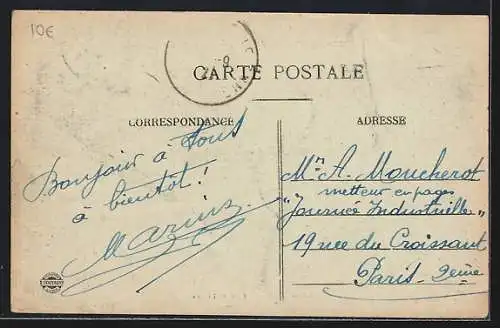 10€
CARTE POSTALE
CORRESPONDANCE
ADRESSE
Bonjour à Tous
à bientôt!
Marius
Mr A. Moucherot
metteur en pages
"Journée Industrielle"
19 rue du Croissant
Paris. 2ème